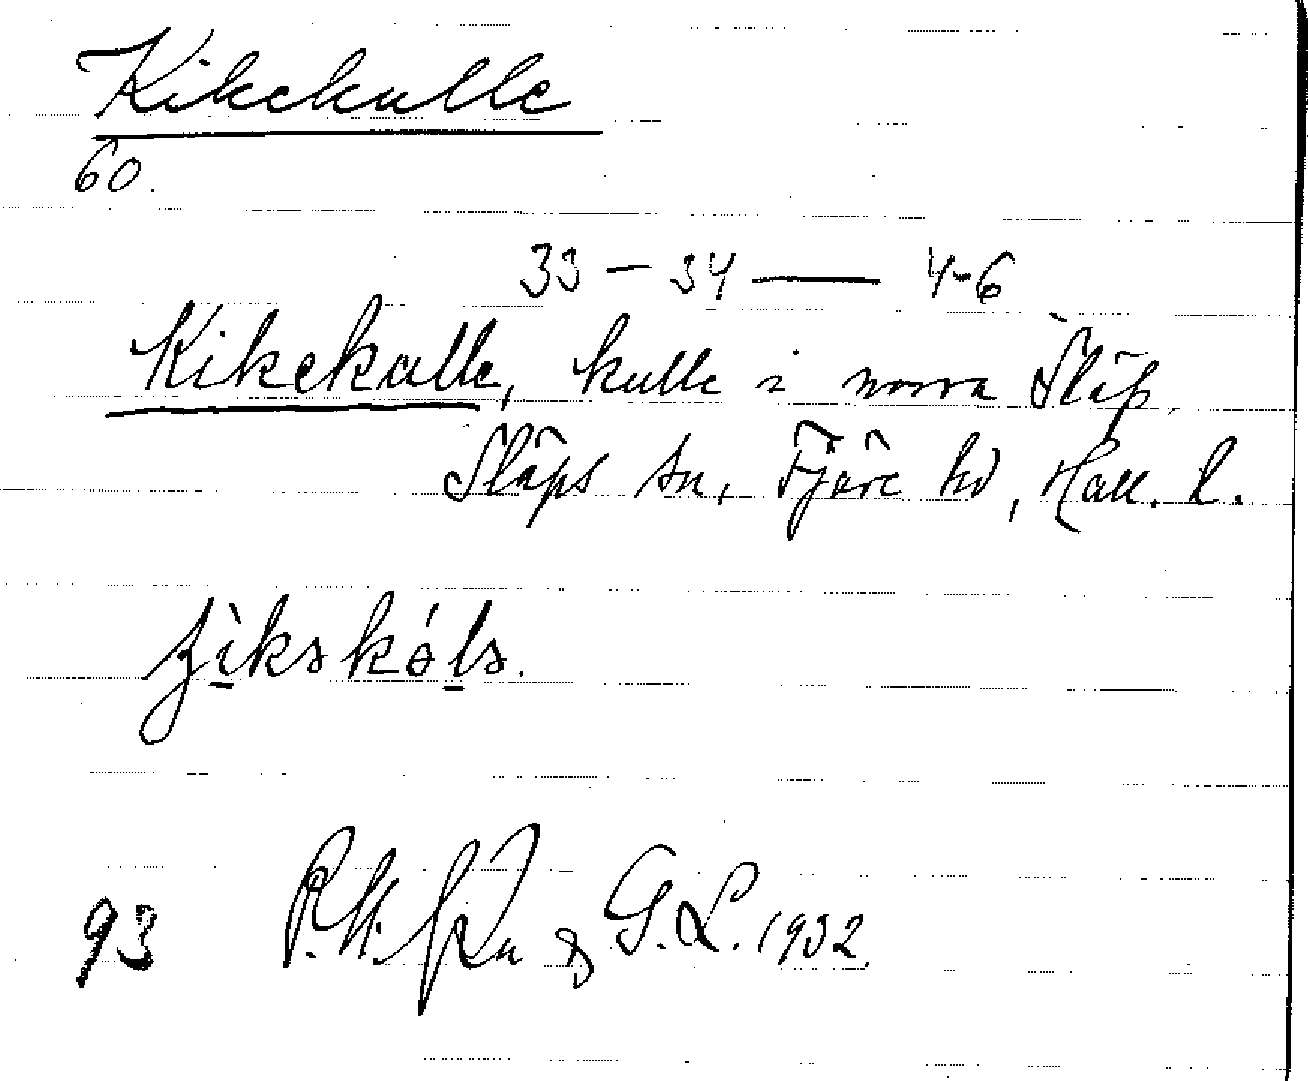 Kikekulle
60.
33 – 34 — 4-6
Kikekulle, kulle i norra Släp,
Släps sn, Fjäre hd, Hall. l.
93 G.L. 1932.